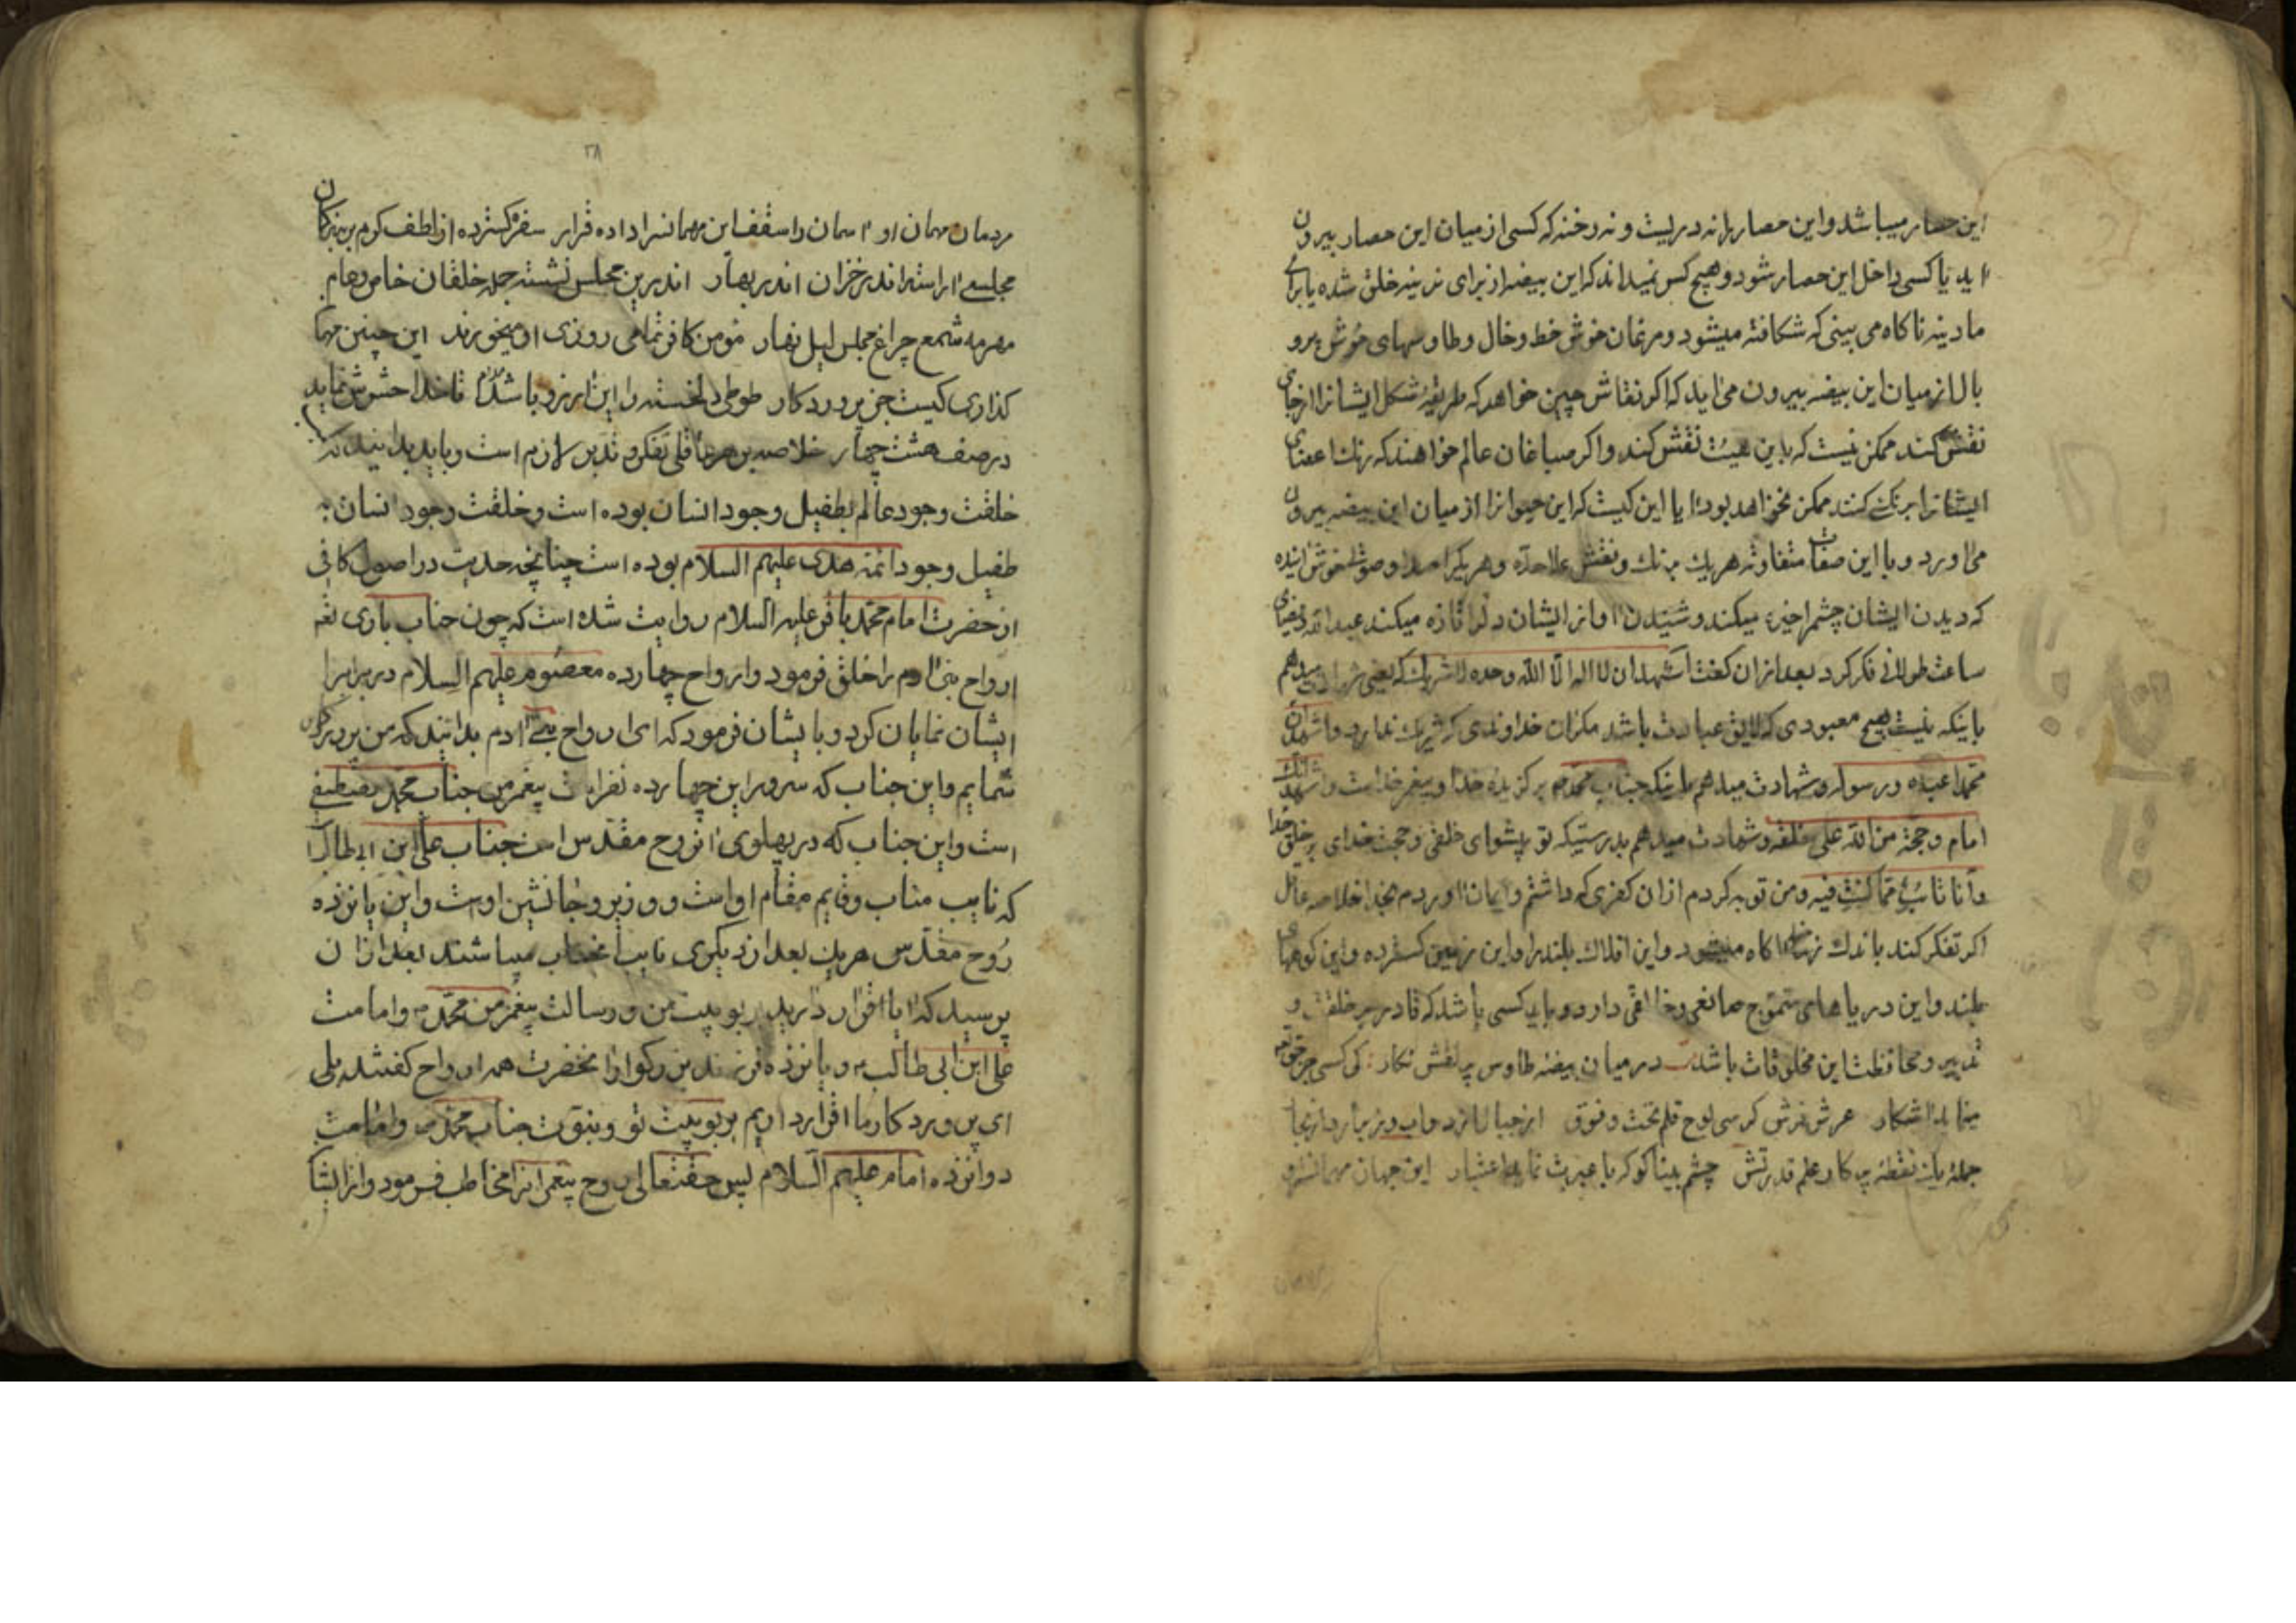 این حصار میباشد واین حصار را نه دریست و نه رخنه که کسی از میان این حصار بیرون
اید یا کسی داخل این حصار شود و هیچ کس نمیداند که این بیضه از برای نرینه خلق شده یا برای
مادینه ناکاه می بینی که شکافته میشود و مرغان خوش خط وخال وطاوسهای خوش پرو
بال از میان این بیضه بیرون می اید که اکر نقاش چین خواهد که طریقهٔ شکل ایشانرا از جای
نقش کند ممکن نیست که باین هیئت نقش کند واکر صباغان عالم خواهند که رنك اعضای
ایشانرا برنك کنند ممکن نخواهد بود ایا این کیست که این حیوانرا از میان این بیضه بیرون
می اورد و با این صفات متفاوته هریك برنك ونقش علاحده وهریکرا صدا وصوت خوش
که دیدن ایشان چشمرا خیره میکند وشنیدن اواز ایشان دلرا تازه میکند عبدالله
ساعت طولانی فکر کرد بعد ازان کفت اشهد ان لا اله الا الله وحده لا شریك له یعنی شهادت میدهم
باینکه نیست هیچ معبودی که لایق عبادت باشد مکر ان خداوندی که شریك ندارد واشهد ان
محمدا عبده ورسوله وشهادت میدهم باینکه جناب محمد برکزیدهٔ خدا وپیغمبر خداست واشهد انك
امام وحجة من الله علی خلقه وشهادت میدهم بدرستیکه تو پیشوای خلقی وحجت خدای بر خلق خدا
وانا تائب مما کنت فیه ومن توبه کردم ازان کفری که داشتم وایمان اوردم بخدا خلاصه عاقل
اکر تفکر کند باندك زمانی اکاه میشود واین افلاك بلند را واین زمین کسترده واین کوههای
بلند واین دریاهای متموج صانعی وخالقی دارد وباید کسی باشد که قادر بر خلقت و
تدبیر ومحافظت این مخلوقات باشد در میان بیضه طاوس پر نقش نکار کی کسی جز حق
نماید اشکار عرش فرش کرسی لوح قلم تحت وفوق از جبال
جمله یك نقطه پرکار علم قدرتش چشم بینا کو که با عبرت نماید اعتبار این جهان مهمانسرا و
مردمان مهمان او اسمان را سقف این مهمانسرا داده قرار سفره کسترده از لطف کرم بر بندکان
مجلسی اراسته اندر خزان اندر بهار اندرین مجلس نشسته جمله خلقان خاص وعام
مهر مه شمع چراغ مجلس لیل نهار مؤمن کافر تمامی روزی او میخورند این چنین مهما
کذاری کیست جز پروردکار طوطی دلخسته را این ارزو باشد مدام تا خدا حشرش نماید
در صف هشت چهار خلاصه بر هر عاقلی تفکر وتدبر لازم است وباید بدانید که
خلقت وجود عالم بطفیل وجود انسان بوده است وخلقت وجود انسان به
طفیل وجود ائمه هدی علیهم السلام بوده است چنانچه حدیث در اصول کافی
از حضرت امام محمد باقر علیه السلام روایت شده است که چون جناب باری تعه
ارواح بنی ادم را خلق فرمود وارواح چهارده معصوم علیهم السلام در برابر
ایشان نمایان کرد وبایشان فرمود که ای ارواح بنی ادم بدانید که من پروردکار
شمایم واین جناب که سرور این چهارده نفرات پیغمبر من جناب محمد مصطفی
است واین جناب که در پهلوی ان روح مقدس است جناب علی ابن ابی طالب
که نایب مناب وقایم مقام اوست و وزیر وجانشین اوست واین یازده
روح مقدس هریك بعد از دیکری نایب انجناب میباشند بعد ازان
پرسید که ایا اقرار دارید بربوبیت من و رسالت پیغمبر من محمد وامامت
علی ابن ابی طالب و یازده فرزند بزرکوار انحضرت همه ارواح کفتند بلی
ای پروردکار ما اقرار داریم بربوبیت تو وبنوت جناب محمد وامامت
دوازده امام علیهم السلام پس حقتعالی روح پیغمبرانرا مخاطب فرمود واز ایشا